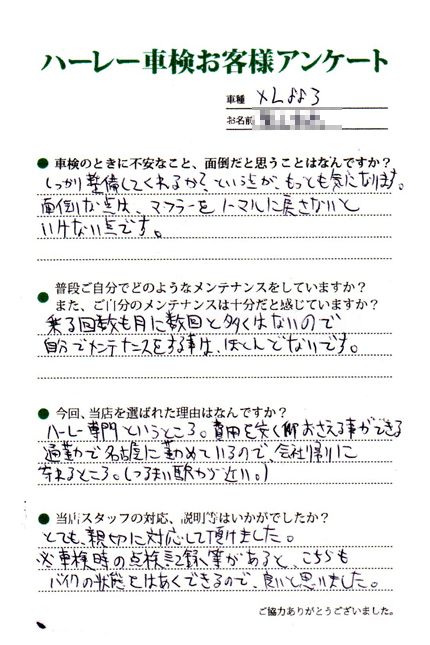 ハーレー車検お客様アンケート
車種 XL883
お名前
● 車検のときに不安なこと、面倒だと思うことはなんですか？
しっかり整備してくれるか、という点が、もっとも気になります。
面倒な点は、マフラーをノーマルに戻さないと
いけない点です。
● 普段ご自分でどのようなメンテナンスをしていますか？
また、ご自分のメンテナンスは十分だと感じていますか？
乗る回数も月に数回と多くはないので
自分でメンテナンスをする事は、ほとんどないです。
● 今回、当店を選ばれた理由はなんですか？
ハーレー専門というところ。費用を安くおさえる事ができる
通勤で名古屋に勤めているので、会社帰りに
寄れるところ。(つるまい駅から近い。)
● 当店スタッフの対応、説明等はいかがでしたか？
とても、親切に対応して頂けました。
※車検時の点検記録等があると、こちらも
バイクの状態をはあくできるので、良いと思いました。
ご協力ありがとうございました。